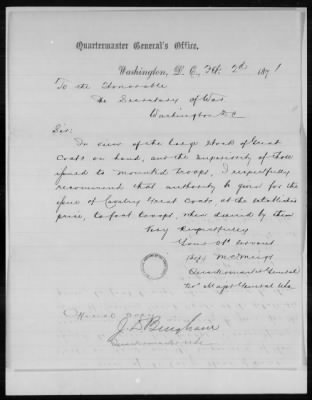 Quartermaster General's Office,
Washington, D. C., Feb. 2d 1871
To the Honorable
The Secretary of War
Washington D.C.
Sir:
In view of the large stock of Great
Coats on hand, and the superiority of those
issued to mounted troops, I respectfully
recommend that authority be given for the
issue of Cavalry Great Coats, at the established
price, to foot troops, when desired by them
Very Respectfully
Your Ob Servant
M. C. Meigs
Quartermaster General
Bvt Major General USA
Official Copy
J. D. Bingham
Quartermaster